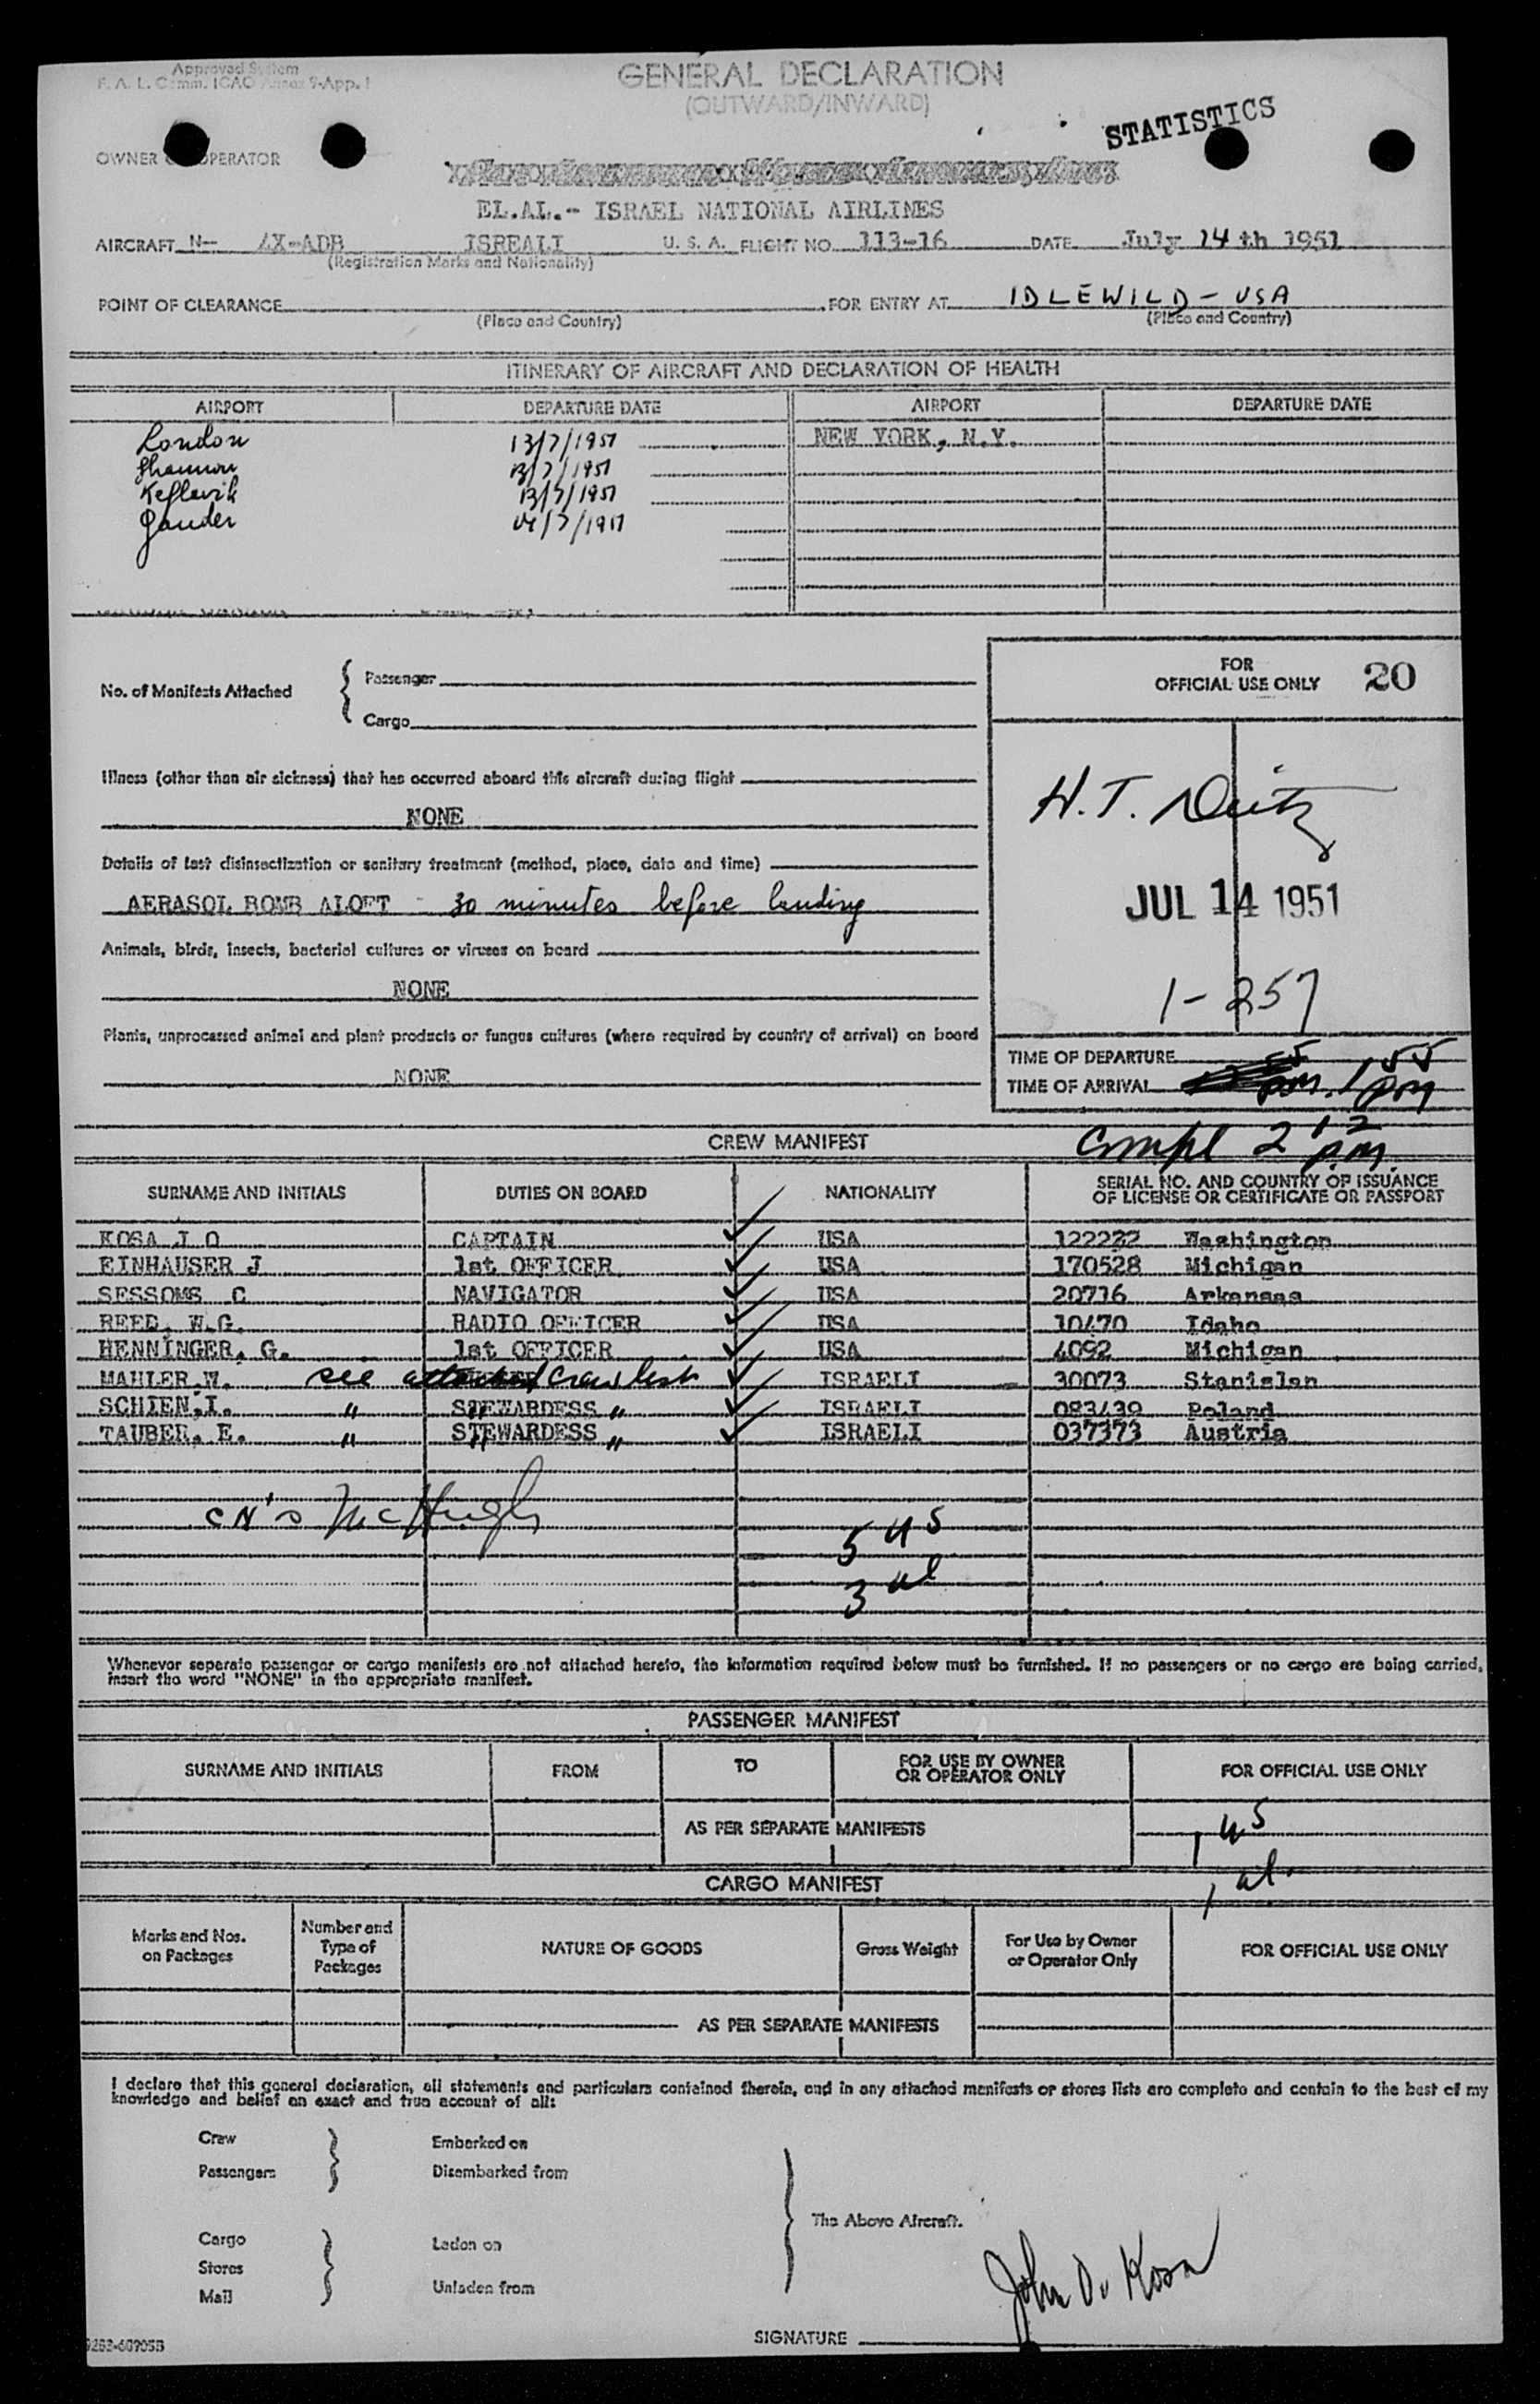 Approved System
F. A. L. Comm. ICAO Annex 9-App. 1
GENERAL DECLARATION
(OUTWARD/INWARD)
STATISTICS
OWNER OPERATOR
EL.AL.- ISRAEL NATIONAL AIRLINES
AIRCRAFT N- 4X-ADB ISREALI U. S. A. FLIGHT NO. 113-16 DATE July 14 th 1951
(Registration Marks and Nationality)
POINT OF CLEARANCE FOR ENTRY AT IDLEWILD - USA
(Place and Country) (Place and Country)
ITINERARY OF AIRCRAFT AND DECLARATION OF HEALTH
AIRPORT DEPARTURE DATE AIRPORT DEPARTURE DATE
London 13/7/1951 NEW YORK, N.Y.
Shannon 13/7/1951
Keflavik 13/7/1951
Gander 14/7/1951
No. of Manifests Attached { Passenger
Cargo
FOR
OFFICIAL USE ONLY 20
Illness (other than air sickness) that has occurred aboard this aircraft during flight
NONE
Details of last disinsectization or sanitary treatment (method, place, date and time)
AERASOL BOMB ALOFT - 30 minutes before landing
Animals, birds, insects, bacterial cultures or viruses on board
NONE
Plants, unprocessed animal and plant products or fungus cultures (where required by country of arrival) on board
NONE
H.T.
JUL 14 1951
1-257
TIME OF DEPARTURE
TIME OF ARRIVAL 1 55 PM
Compl 2 12 P.M.
CREW MANIFEST
SURNAME AND INITIALS DUTIES ON BOARD NATIONALITY SERIAL NO. AND COUNTRY OF ISSUANCE
OF LICENSE OR CERTIFICATE OR PASSPORT
KOSA J O CAPTAIN USA 122232 Washington
EINHAUSER J 1st OFFICER USA 170528 Michigan
SESSOMS C NAVIGATOR USA 20716 Arkansas
REED, W.G. RADIO OFFICER USA 10470 Idaho
HENNINGER, G. 1st OFFICER USA 4092 Michigan
MAHLER.W. see attached Crew list ISRAELI 30073 Stanislan
SCHIEN.I. " STEWARDESS " ISRAELI 083439 Poland
TAUBER, E. " STEWARDESS " ISRAELI 037373 Austria
CN's McHugh
5 US
3 al
Whenever separate passenger or cargo manifests are not attached hereto, the information required below must be furnished. If no passengers or no cargo are being carried,
insert the word "NONE" in the appropriate manifest.
PASSENGER MANIFEST
SURNAME AND INITIALS FROM TO FOR USE BY OWNER
OR OPERATOR ONLY FOR OFFICIAL USE ONLY
AS PER SEPARATE MANIFESTS
1 US
1 al.
CARGO MANIFEST
Marks and Nos.
on Packages Number and
Type of
Packages NATURE OF GOODS Gross Weight For Use by Owner
or Operator Only FOR OFFICIAL USE ONLY
AS PER SEPARATE MANIFESTS
I declare that this general declaration, all statements and particulars contained therein, and in any attached manifests or stores lists are complete and contain to the best of my
knowledge and belief an exact and true account of all:
Crew Embarked on
Passengers Disembarked from
The Above Aircraft.
Cargo Laden on
Stores
Mail Unladen from
John O. Kosa
SIGNATURE